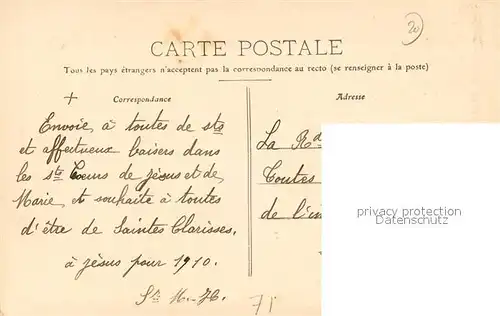 20
CARTE POSTALE
Tous les pays étrangers n'acceptent pas la correspondance au recto (se renseigner à la poste)
Correspondance
Adresse
Envoie à toutes de sts
et affectueux baisers dans
les sts Coeurs de Jésus et de
Marie, et souhaite à toutes
d'être de Saintes Clarisses,
à Jésus pour 1910.
La Rde
Toutes
de l'im
privacy protection
DELCAMPE